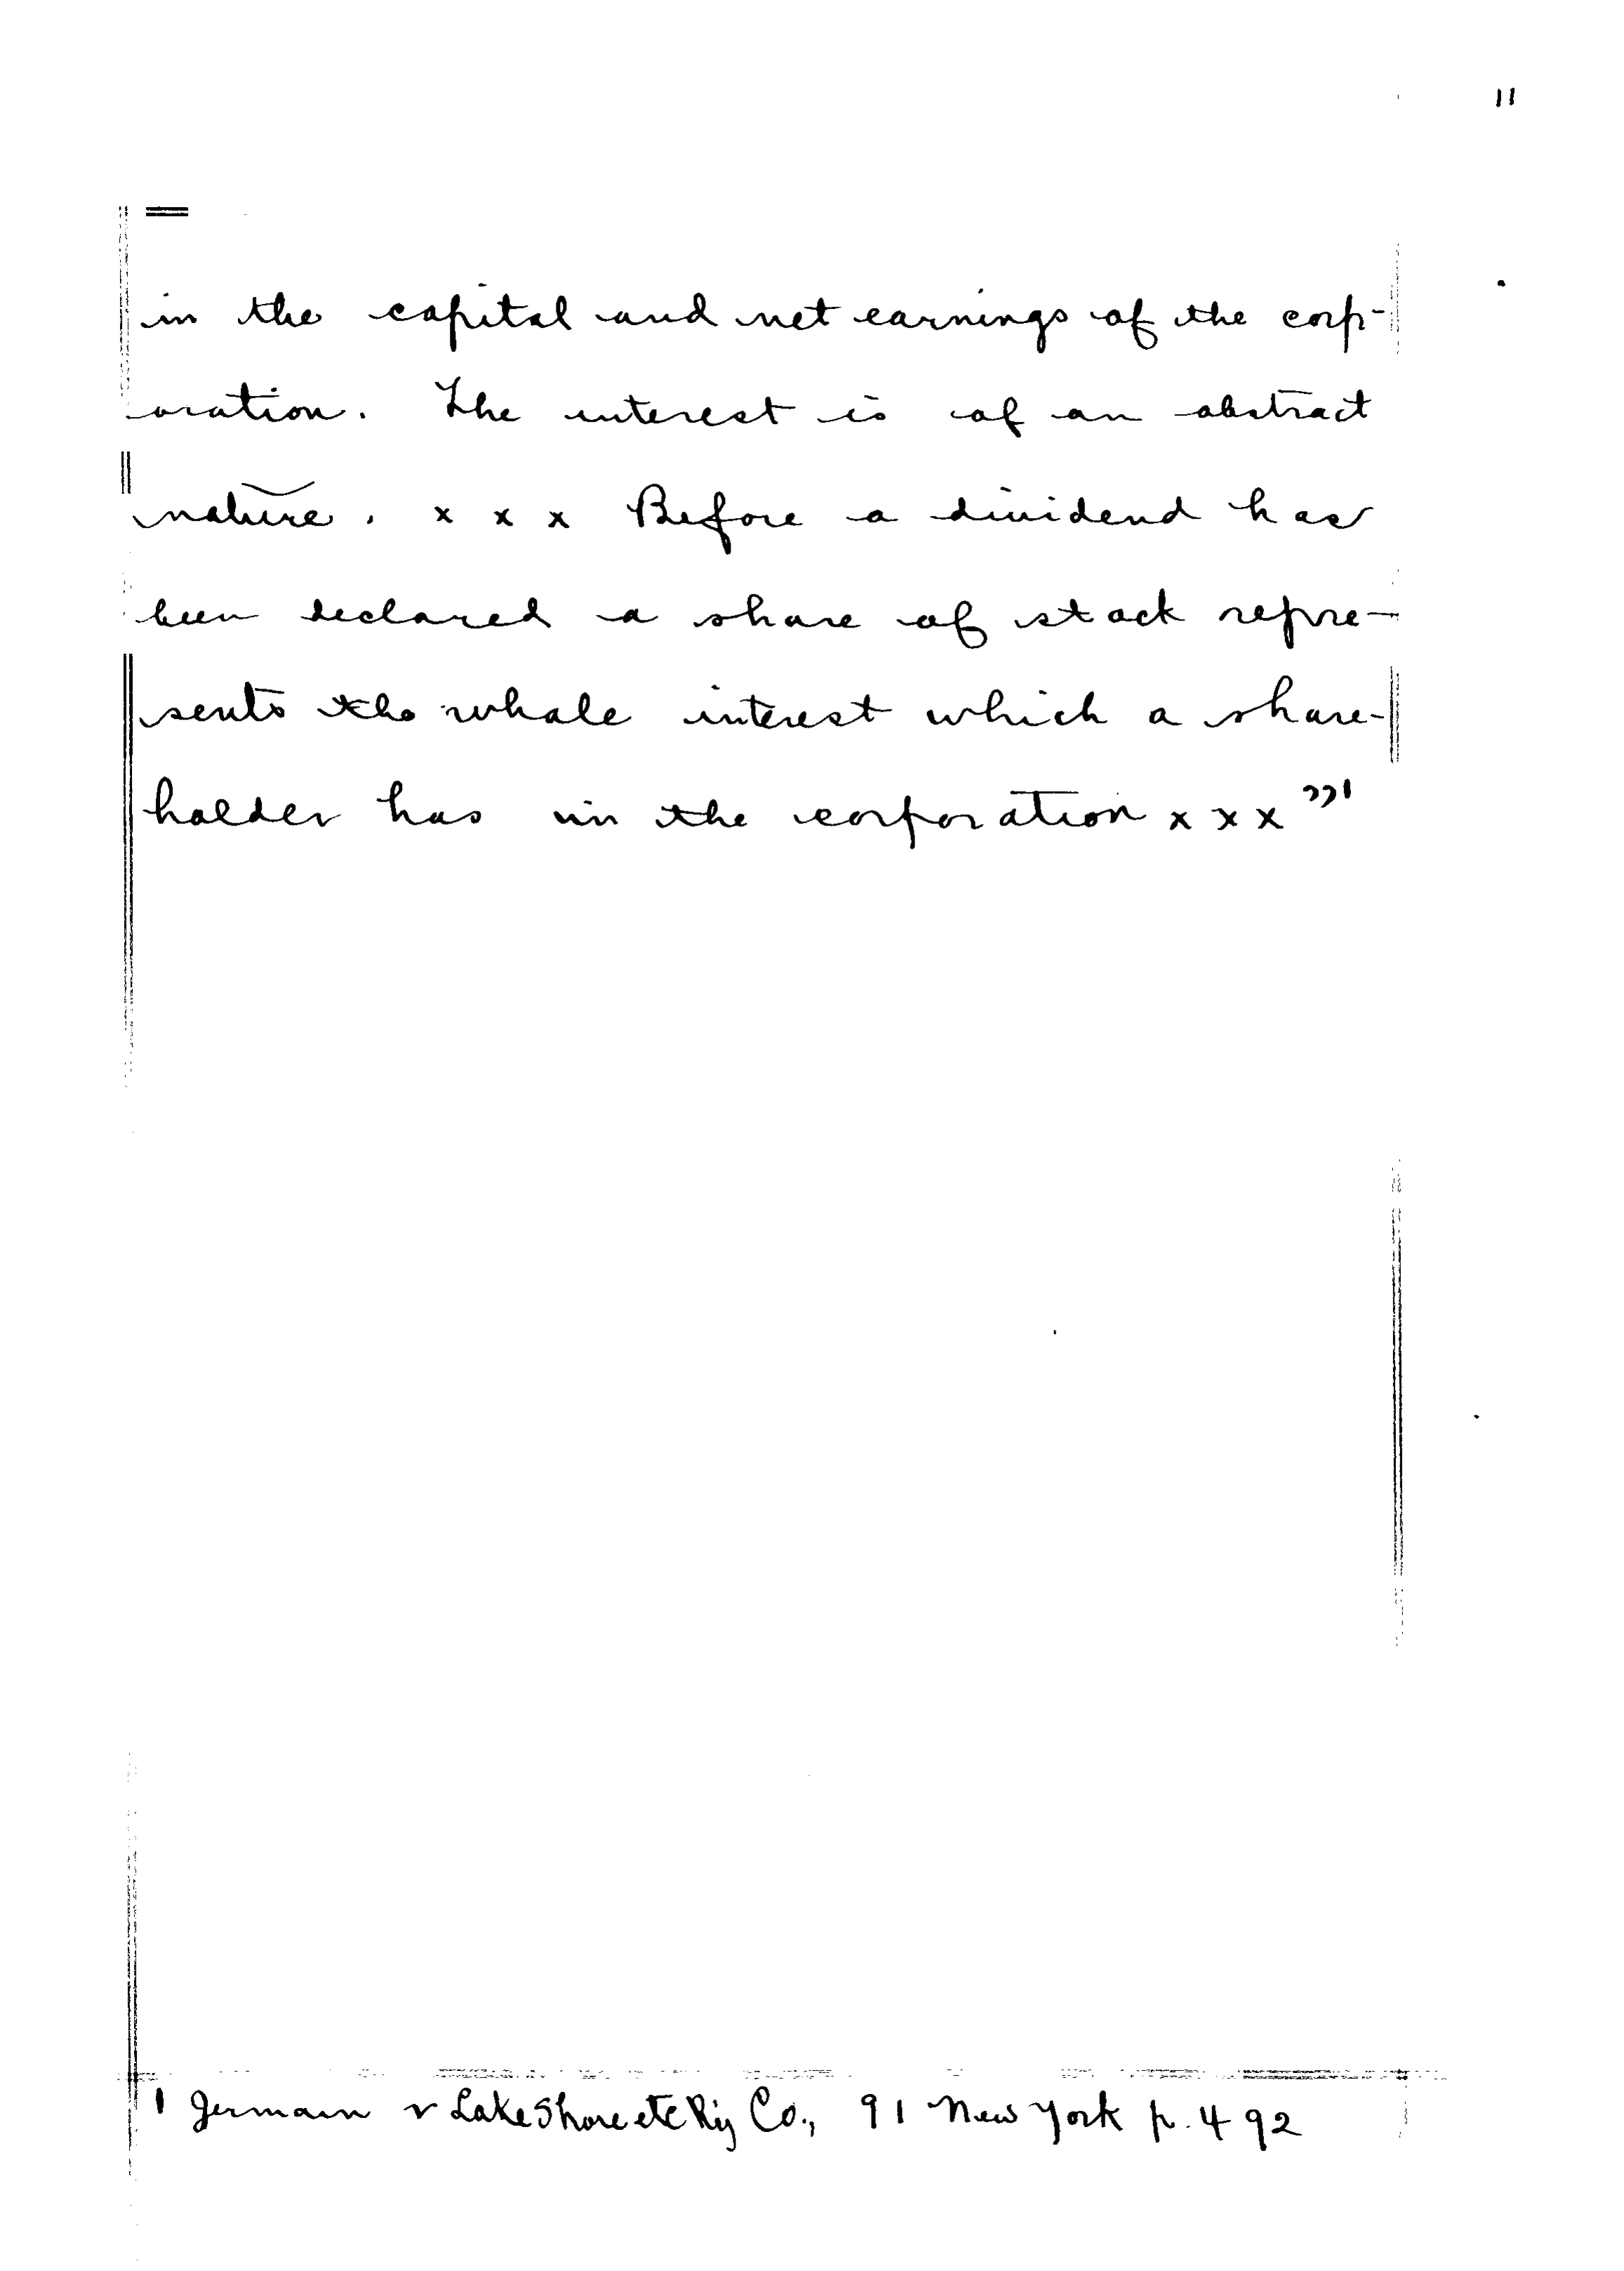 11
in the capital and net earnings of the corp-
oration. The interest is of an abstract
nature. x x x Before a dividend has
been declared a share of stock repre-
sents the whole interest which a share-
holder has in the corporation x x x"1
1 Jermain v Lake Shore etc Ry Co., 91 New York p. 492